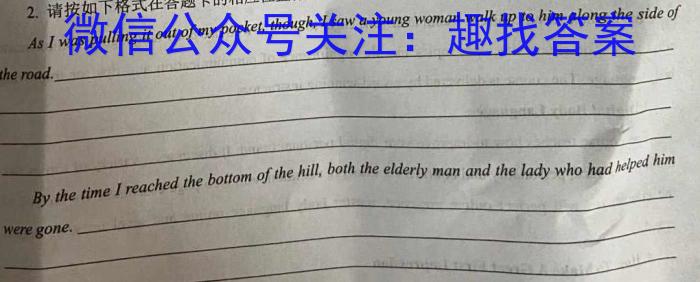 2. 请按如下格式在答题卡的相应位置
微信公众号关注：趣找答案
As I was pulling it out of my pocket, though, I saw a young woman walk up to him along the side of
the road.
By the time I reached the bottom of the hill, both the elderly man and the lady who had helped him
were gone.